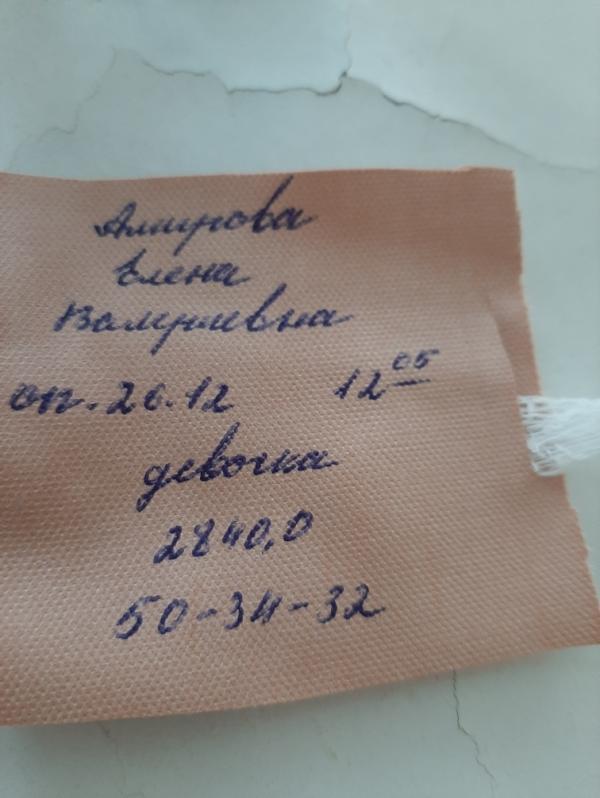 Амирова
Елена
Валериевна
оп. 26.12 12 05
девочка
2840,0
50-34-32